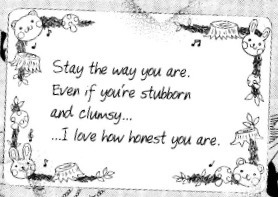 Stay the way you are.
Even if you're stubborn
and clumsy...
...I love how honest you are.